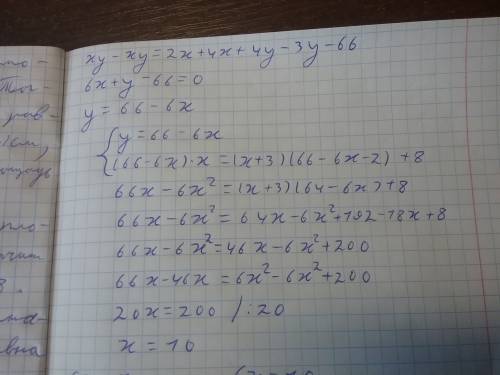 xy - xy = 2x + 4x + 4y - 3y - 66
6x + y - 66 = 0
y = 66 - 6x
{ y = 66 - 6x
(66 - 6x) · x = (x + 3)(66 - 6x - 2) + 8
66x - 6x² = (x + 3)(64 - 6x) + 8
66x - 6x² = 64x - 6x² + 192 - 18x + 8
66x - 6x² = 46x - 6x² + 200
66x - 46x = 6x² - 6x² + 200
20x = 200 / : 20
x = 10